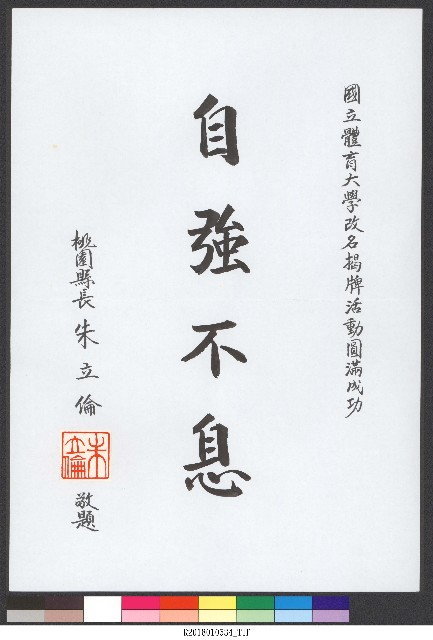 國立體育大學改名揭牌活動圓滿成功
自強不息
桃園縣長 朱立倫
朱立倫
敬題
R2018010534_TIF